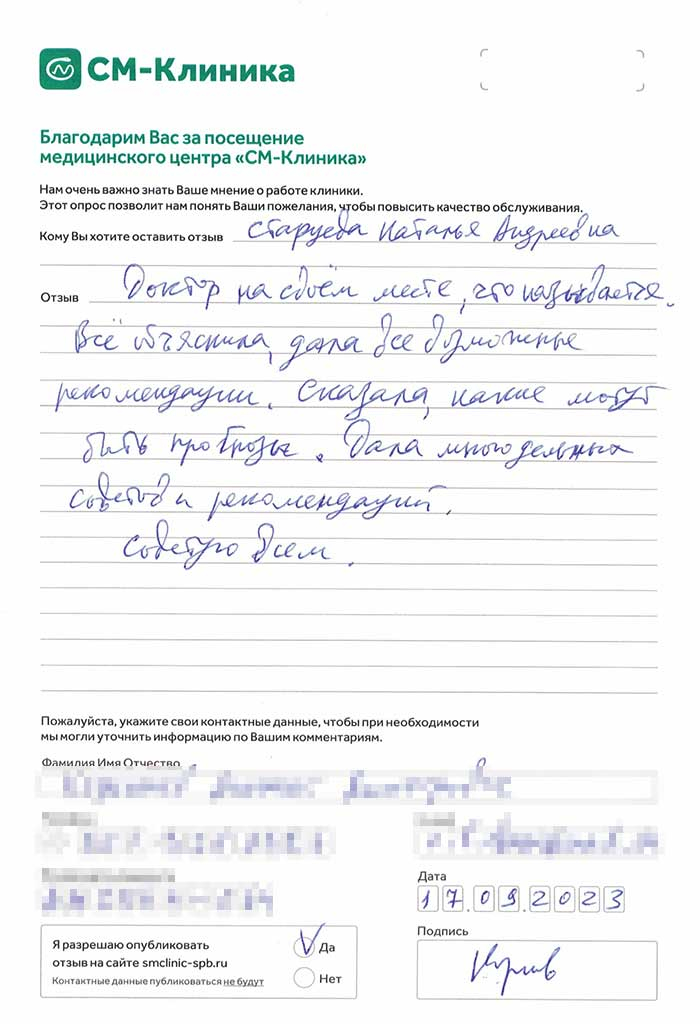 СМ-Клиника
Благодарим Вас за посещение
медицинского центра «СМ-Клиника»
Нам очень важно знать Ваше мнение о работе клиники.
Этот опрос позволит нам понять Ваши пожелания, чтобы повысить качество обслуживания.
Кому Вы хотите оставить отзыв Старцева Наталья Андреевна
Отзыв Доктор на своём месте, что называется.
Всё объяснила, дала все возможные
рекомендации. Сказала, какие могут
быть прогнозы. Дала много дельных
советов и рекомендаций.
Советую всем.
Пожалуйста, укажите свои контактные данные, чтобы при необходимости
мы могли уточнить информацию по Вашим комментариям.
Фамилия Имя Отчество
Дата
17.09.2023
Я разрешаю опубликовать
отзыв на сайте smclinic-spb.ru
Контактные данные публиковаться не будут
Да
Нет
Подпись